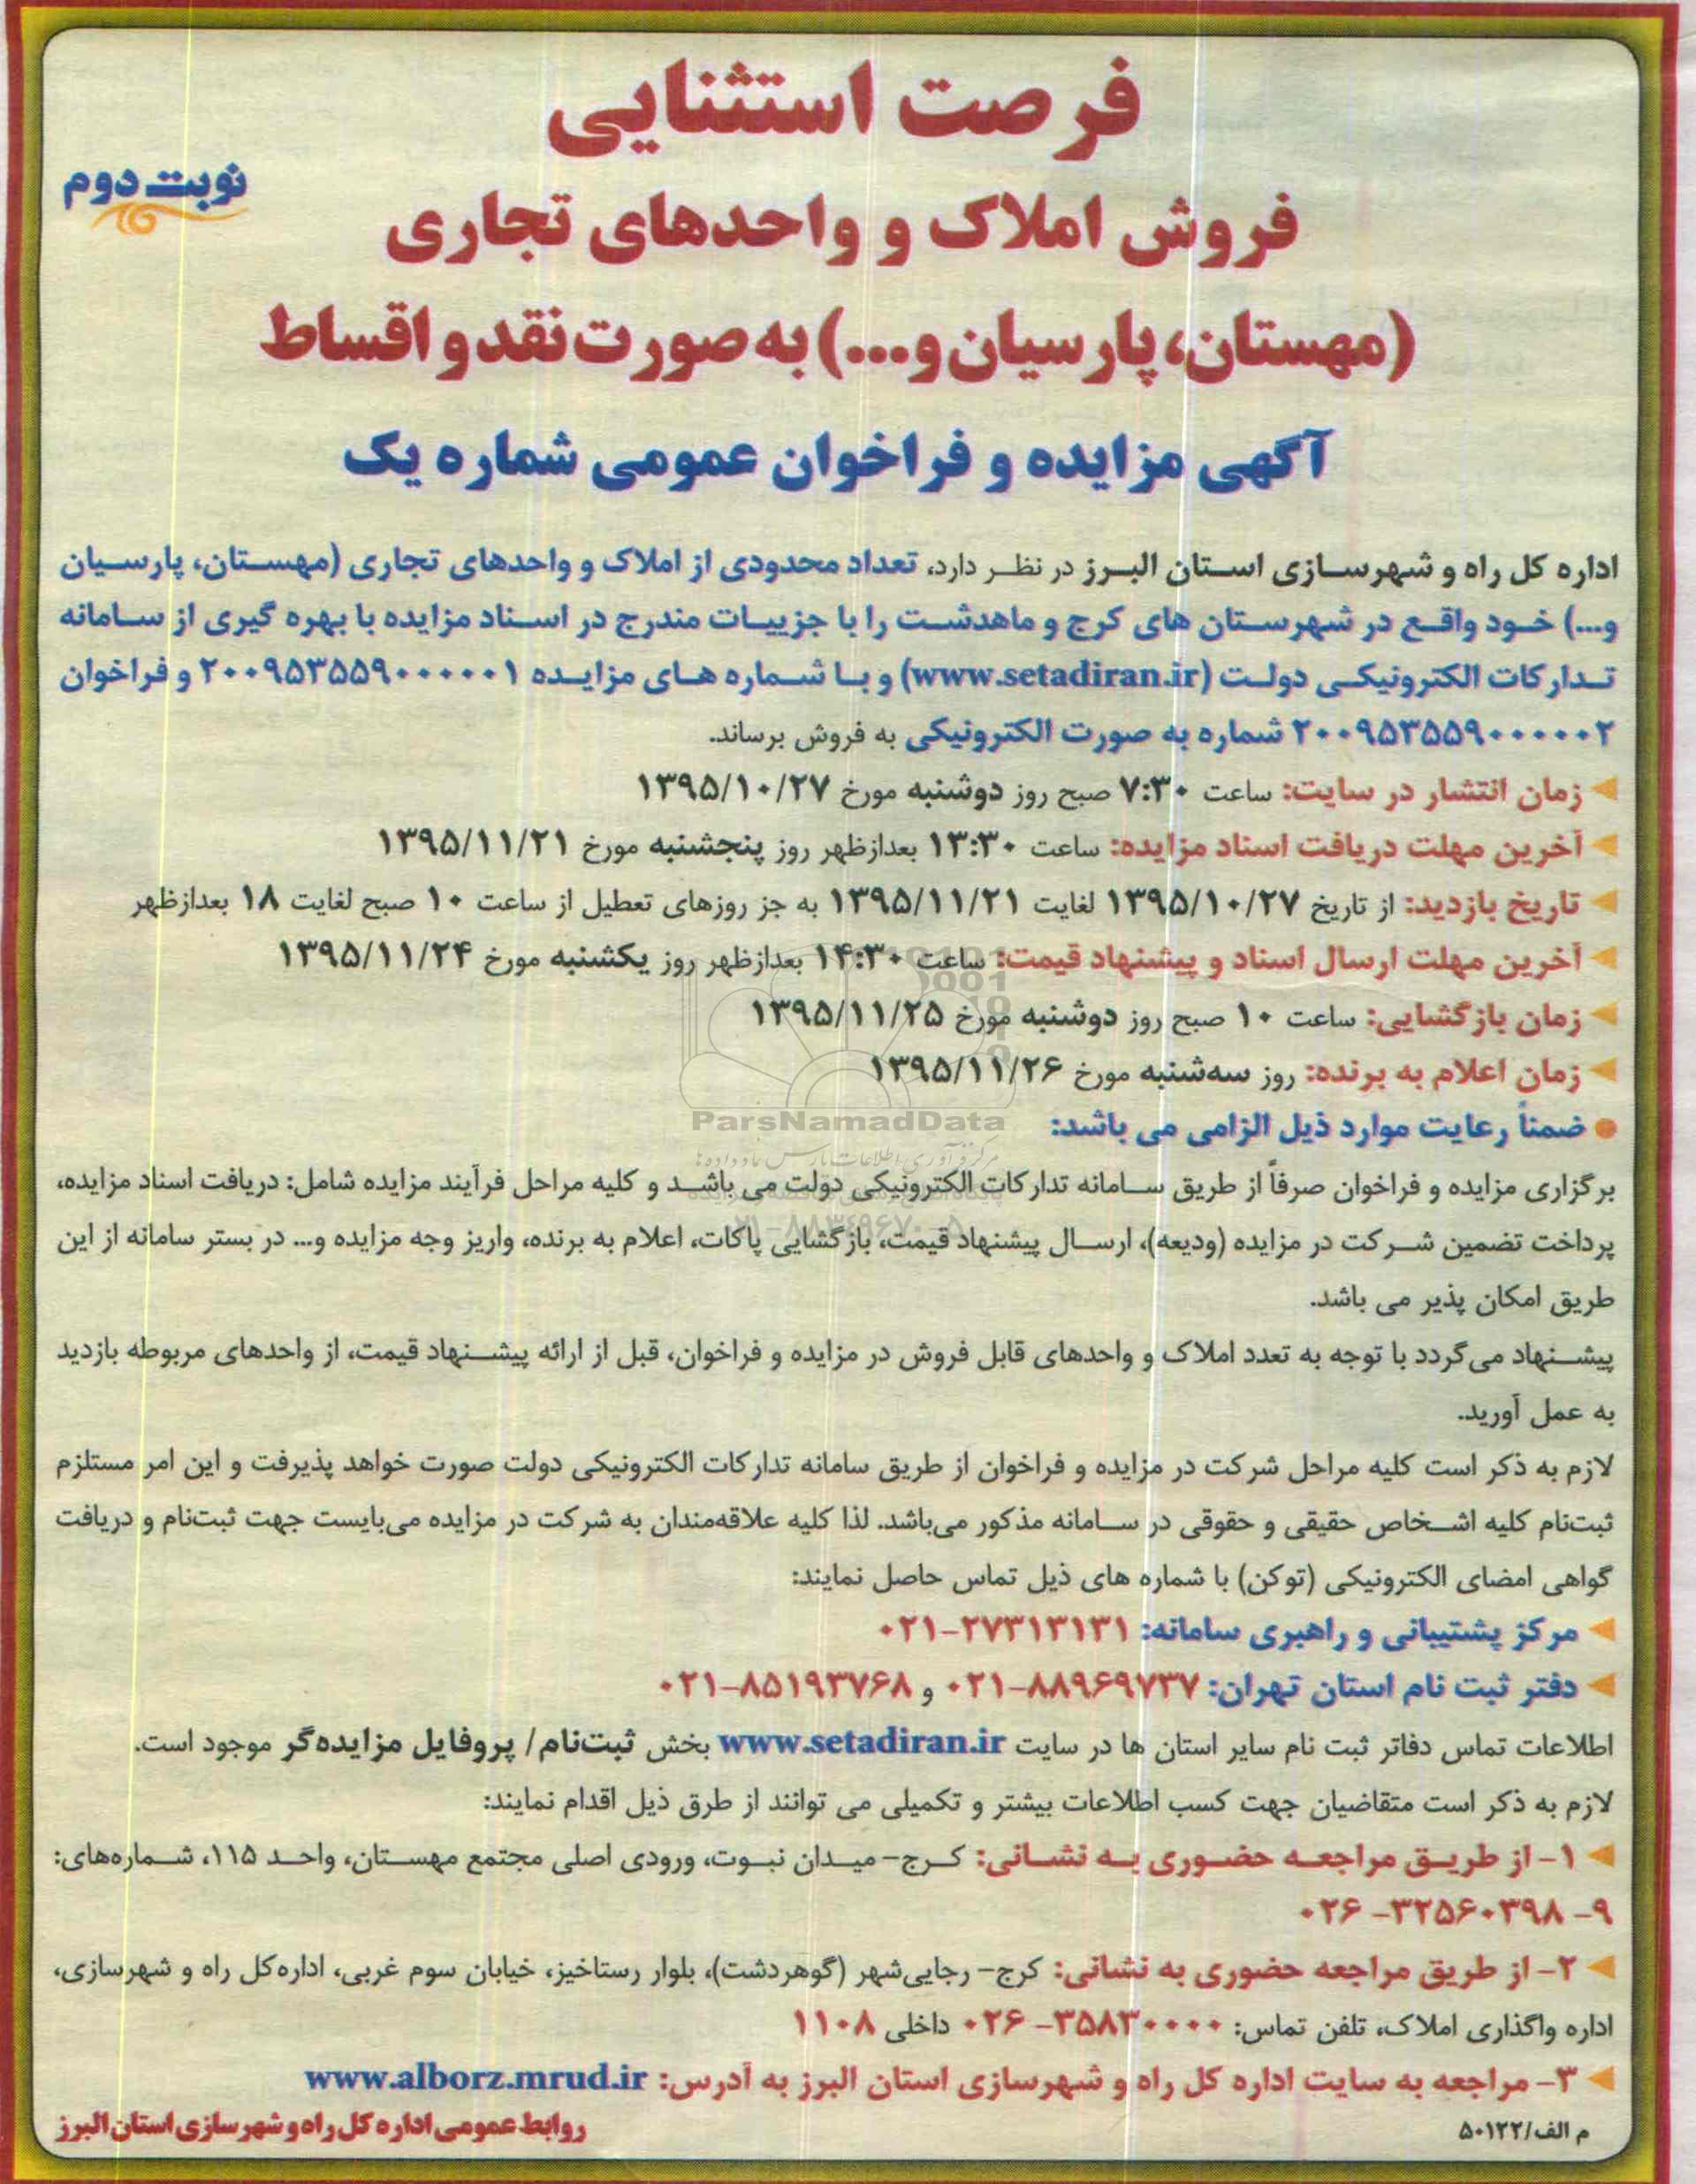 فرصت استثنایی
نوبت دوم
فروش املاک و واحدهای تجاری
(مهستان، پارسیان و...) به صورت نقد و اقساط
آگهی مزایده و فراخوان عمومی شماره یک
اداره کل راه و شهرسازی استان البرز در نظر دارد، تعداد محدودی از املاک و واحدهای تجاری (مهستان، پارسیان
و...) خود واقع در شهرستان های کرج و ماهدشت را با جزییات مندرج در اسناد مزایده با بهره گیری از سامانه
تدارکات الکترونیکی دولت (www.setadiran.ir) و با شماره های مزایده ۲۰۰۹۵۳۵۵۹۰۰۰۰۰۱ و فراخوان
۲۰۰۹۵۳۵۵۹۰۰۰۰۰۲ شماره به صورت الکترونیکی به فروش برساند.
زمان انتشار در سایت: ساعت ۷:۳۰ صبح روز دوشنبه مورخ ۱۳۹۵/۱۰/۲۷
آخرین مهلت دریافت اسناد مزایده: ساعت ۱۳:۳۰ بعدازظهر روز پنجشنبه مورخ ۱۳۹۵/۱۱/۲۱
تاریخ بازدید: از تاریخ ۱۳۹۵/۱۰/۲۷ لغایت ۱۳۹۵/۱۱/۲۱ به جز روزهای تعطیل از ساعت ۱۰ صبح لغایت ۱۸ بعدازظهر
آخرین مهلت ارسال اسناد و پیشنهاد قیمت: ساعت ۱۴:۳۰ بعدازظهر روز یکشنبه مورخ ۱۳۹۵/۱۱/۲۴
زمان بازگشایی: ساعت ۱۰ صبح روز دوشنبه مورخ ۱۳۹۵/۱۱/۲۵
زمان اعلام به برنده: روز سه‌شنبه مورخ ۱۳۹۵/۱۱/۲۶
ParsNamadData
ضمناً رعایت موارد ذیل الزامی می باشد:
برگزاری مزایده و فراخوان صرفاً از طریق سامانه تدارکات الکترونیکی دولت می باشد و کلیه مراحل فرآیند مزایده شامل: دریافت اسناد مزایده،
پرداخت تضمین شرکت در مزایده (ودیعه)، ارسال پیشنهاد قیمت، بازگشایی پاکات، اعلام به برنده، واریز وجه مزایده و... در بستر سامانه از این
طریق امکان پذیر می باشد.
پیشنهاد می‌گردد با توجه به تعدد املاک و واحدهای قابل فروش در مزایده و فراخوان، قبل از ارائه پیشنهاد قیمت، از واحدهای مربوطه بازدید
به عمل آورید.
لازم به ذکر است کلیه مراحل شرکت در مزایده و فراخوان از طریق سامانه تدارکات الکترونیکی دولت صورت خواهد پذیرفت و این امر مستلزم
ثبت‌نام کلیه اشخاص حقیقی و حقوقی در سامانه مذکور می‌باشد. لذا کلیه علاقه‌مندان به شرکت در مزایده می‌بایست جهت ثبت‌نام و دریافت
گواهی امضای الکترونیکی (توکن) با شماره های ذیل تماس حاصل نمایند:
مرکز پشتیبانی و راهبری سامانه: ۲۷۳۱۳۱۳۱-۰۲۱
دفتر ثبت نام استان تهران: ۸۸۹۶۹۷۳۷-۰۲۱ و ۸۵۱۹۳۷۶۸-۰۲۱
اطلاعات تماس دفاتر ثبت نام سایر استان ها در سایت www.setadiran.ir بخش ثبت‌نام/ پروفایل مزایده‌گر موجود است.
لازم به ذکر است متقاضیان جهت کسب اطلاعات بیشتر و تکمیلی می توانند از طرق ذیل اقدام نمایند:
۱- از طریق مراجعه حضوری به نشانی: کرج- میدان نبوت، ورودی اصلی مجتمع مهستان، واحد ۱۱۵، شماره‌های:
۹- ۳۲۵۶۰۳۹۸- ۰۲۶
۲- از طریق مراجعه حضوری به نشانی: کرج- رجایی‌شهر (گوهردشت)، بلوار رستاخیز، خیابان سوم غربی، اداره‌کل راه و شهرسازی،
اداره واگذاری املاک، تلفن تماس: ۳۵۸۳۰۰۰۰- ۰۲۶ داخلی ۱۱۰۸
۳- مراجعه به سایت اداره کل راه و شهرسازی استان البرز به آدرس: www.alborz.mrud.ir
م الف/۵۰۱۲۲
روابط عمومی اداره کل راه و شهرسازی استان البرز